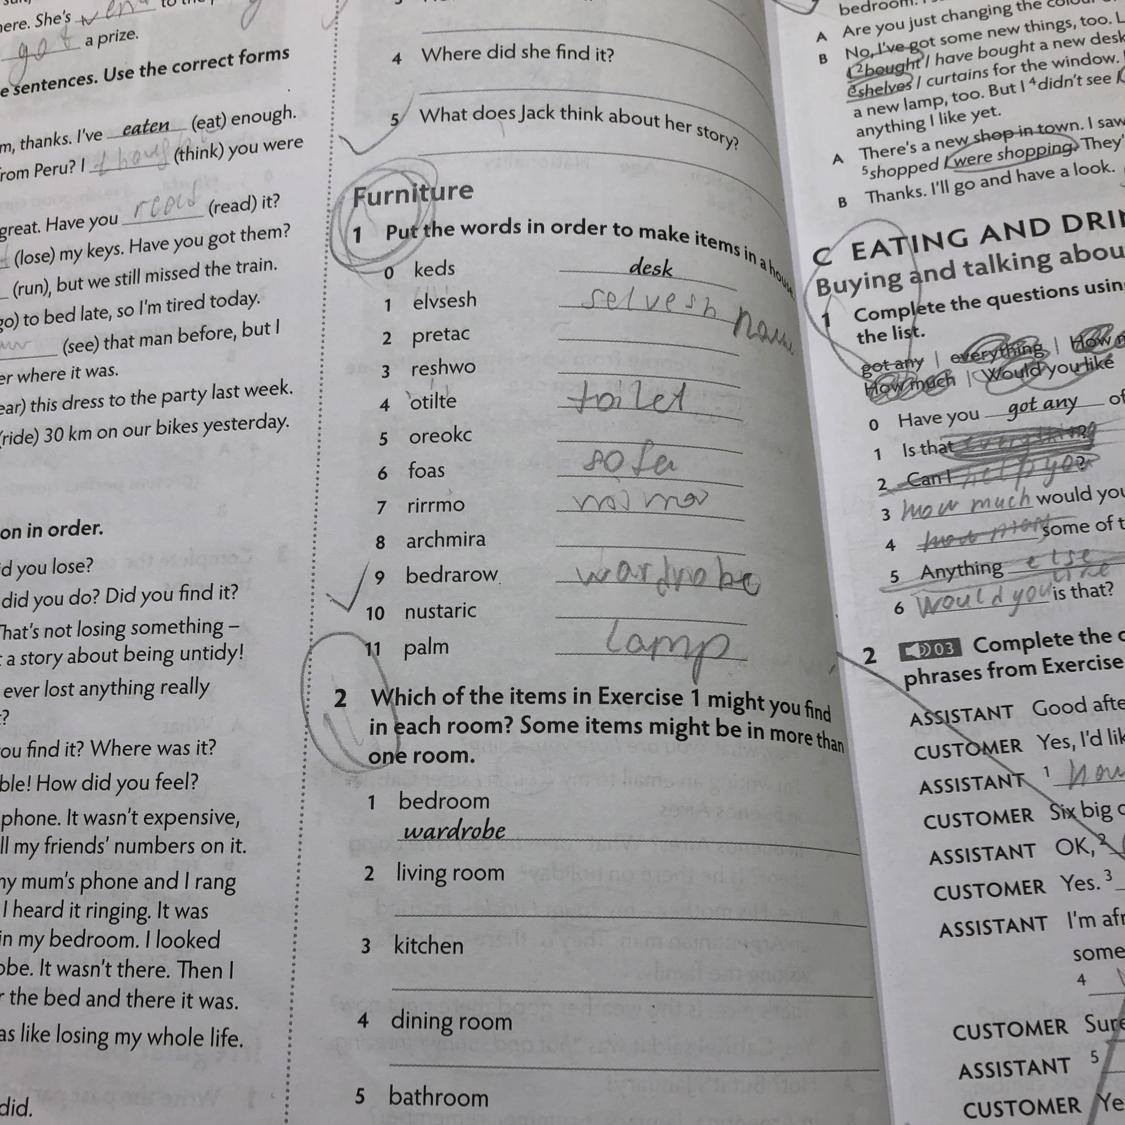 here. She's went to the
got a prize.
e sentences. Use the correct forms
m, thanks. I've eaten (eat) enough.
rom Peru? I (think) you were
great. Have you read (read) it?
(lose) my keys. Have you got them?
(run), but we still missed the train.
go) to bed late, so I'm tired today.
(see) that man before, but I
er where it was.
ear) this dress to the party last week.
(ride) 30 km on our bikes yesterday.
on in order.
d you lose?
did you do? Did you find it?
That's not losing something –
t a story about being untidy!
ever lost anything really
t?
ou find it? Where was it?
ble! How did you feel?
phone. It wasn't expensive,
ll my friends' numbers on it.
ny mum's phone and I rang
I heard it ringing. It was
in my bedroom. I looked
obe. It wasn't there. Then I
r the bed and there it was.
as like losing my whole life.
did.
4 Where did she find it?
5 What does Jack think about her story?
Furniture
1 Put the words in order to make items in a house
0 keds desk
1 elvsesh selvesh
2 pretac
3 reshwo
4 otilte toilet
5 oreokc
6 foas sofa
7 rirrmo
8 archmira
9 bedrarow wardrobe
10 nustaric
11 palm lamp
2 Which of the items in Exercise 1 might you find
in each room? Some items might be in more than
one room.
1 bedroom
wardrobe
2 living room
3 kitchen
4 dining room
5 bathroom
bedroom.
A Are you just changing the
B No, I've got some new things, too.
2 bought / have bought a new desk
shelves / curtains for the window.
a new lamp, too. But I 4 didn't see
anything I like yet.
A There's a new shop in town. I saw
5 shopped / were shopping. They'
B Thanks. I'll go and have a look.
C EATING AND DRI
Buying and talking abou
1 Complete the questions usin
the list.
got any | everything | How m
How much | Would you like
0 Have you got any of
1 Is that
2 Can I help you?
3 how much would you
4 some of t
5 Anything else
like
6 Would you is that?
2 03 Complete the c
phrases from Exercise
ASSISTANT Good afte
CUSTOMER Yes, I'd lik
ASSISTANT 1
CUSTOMER Six big
ASSISTANT OK, 2
CUSTOMER Yes. 3
ASSISTANT I'm afr
some
4
CUSTOMER Sure
ASSISTANT 5
CUSTOMER Ye